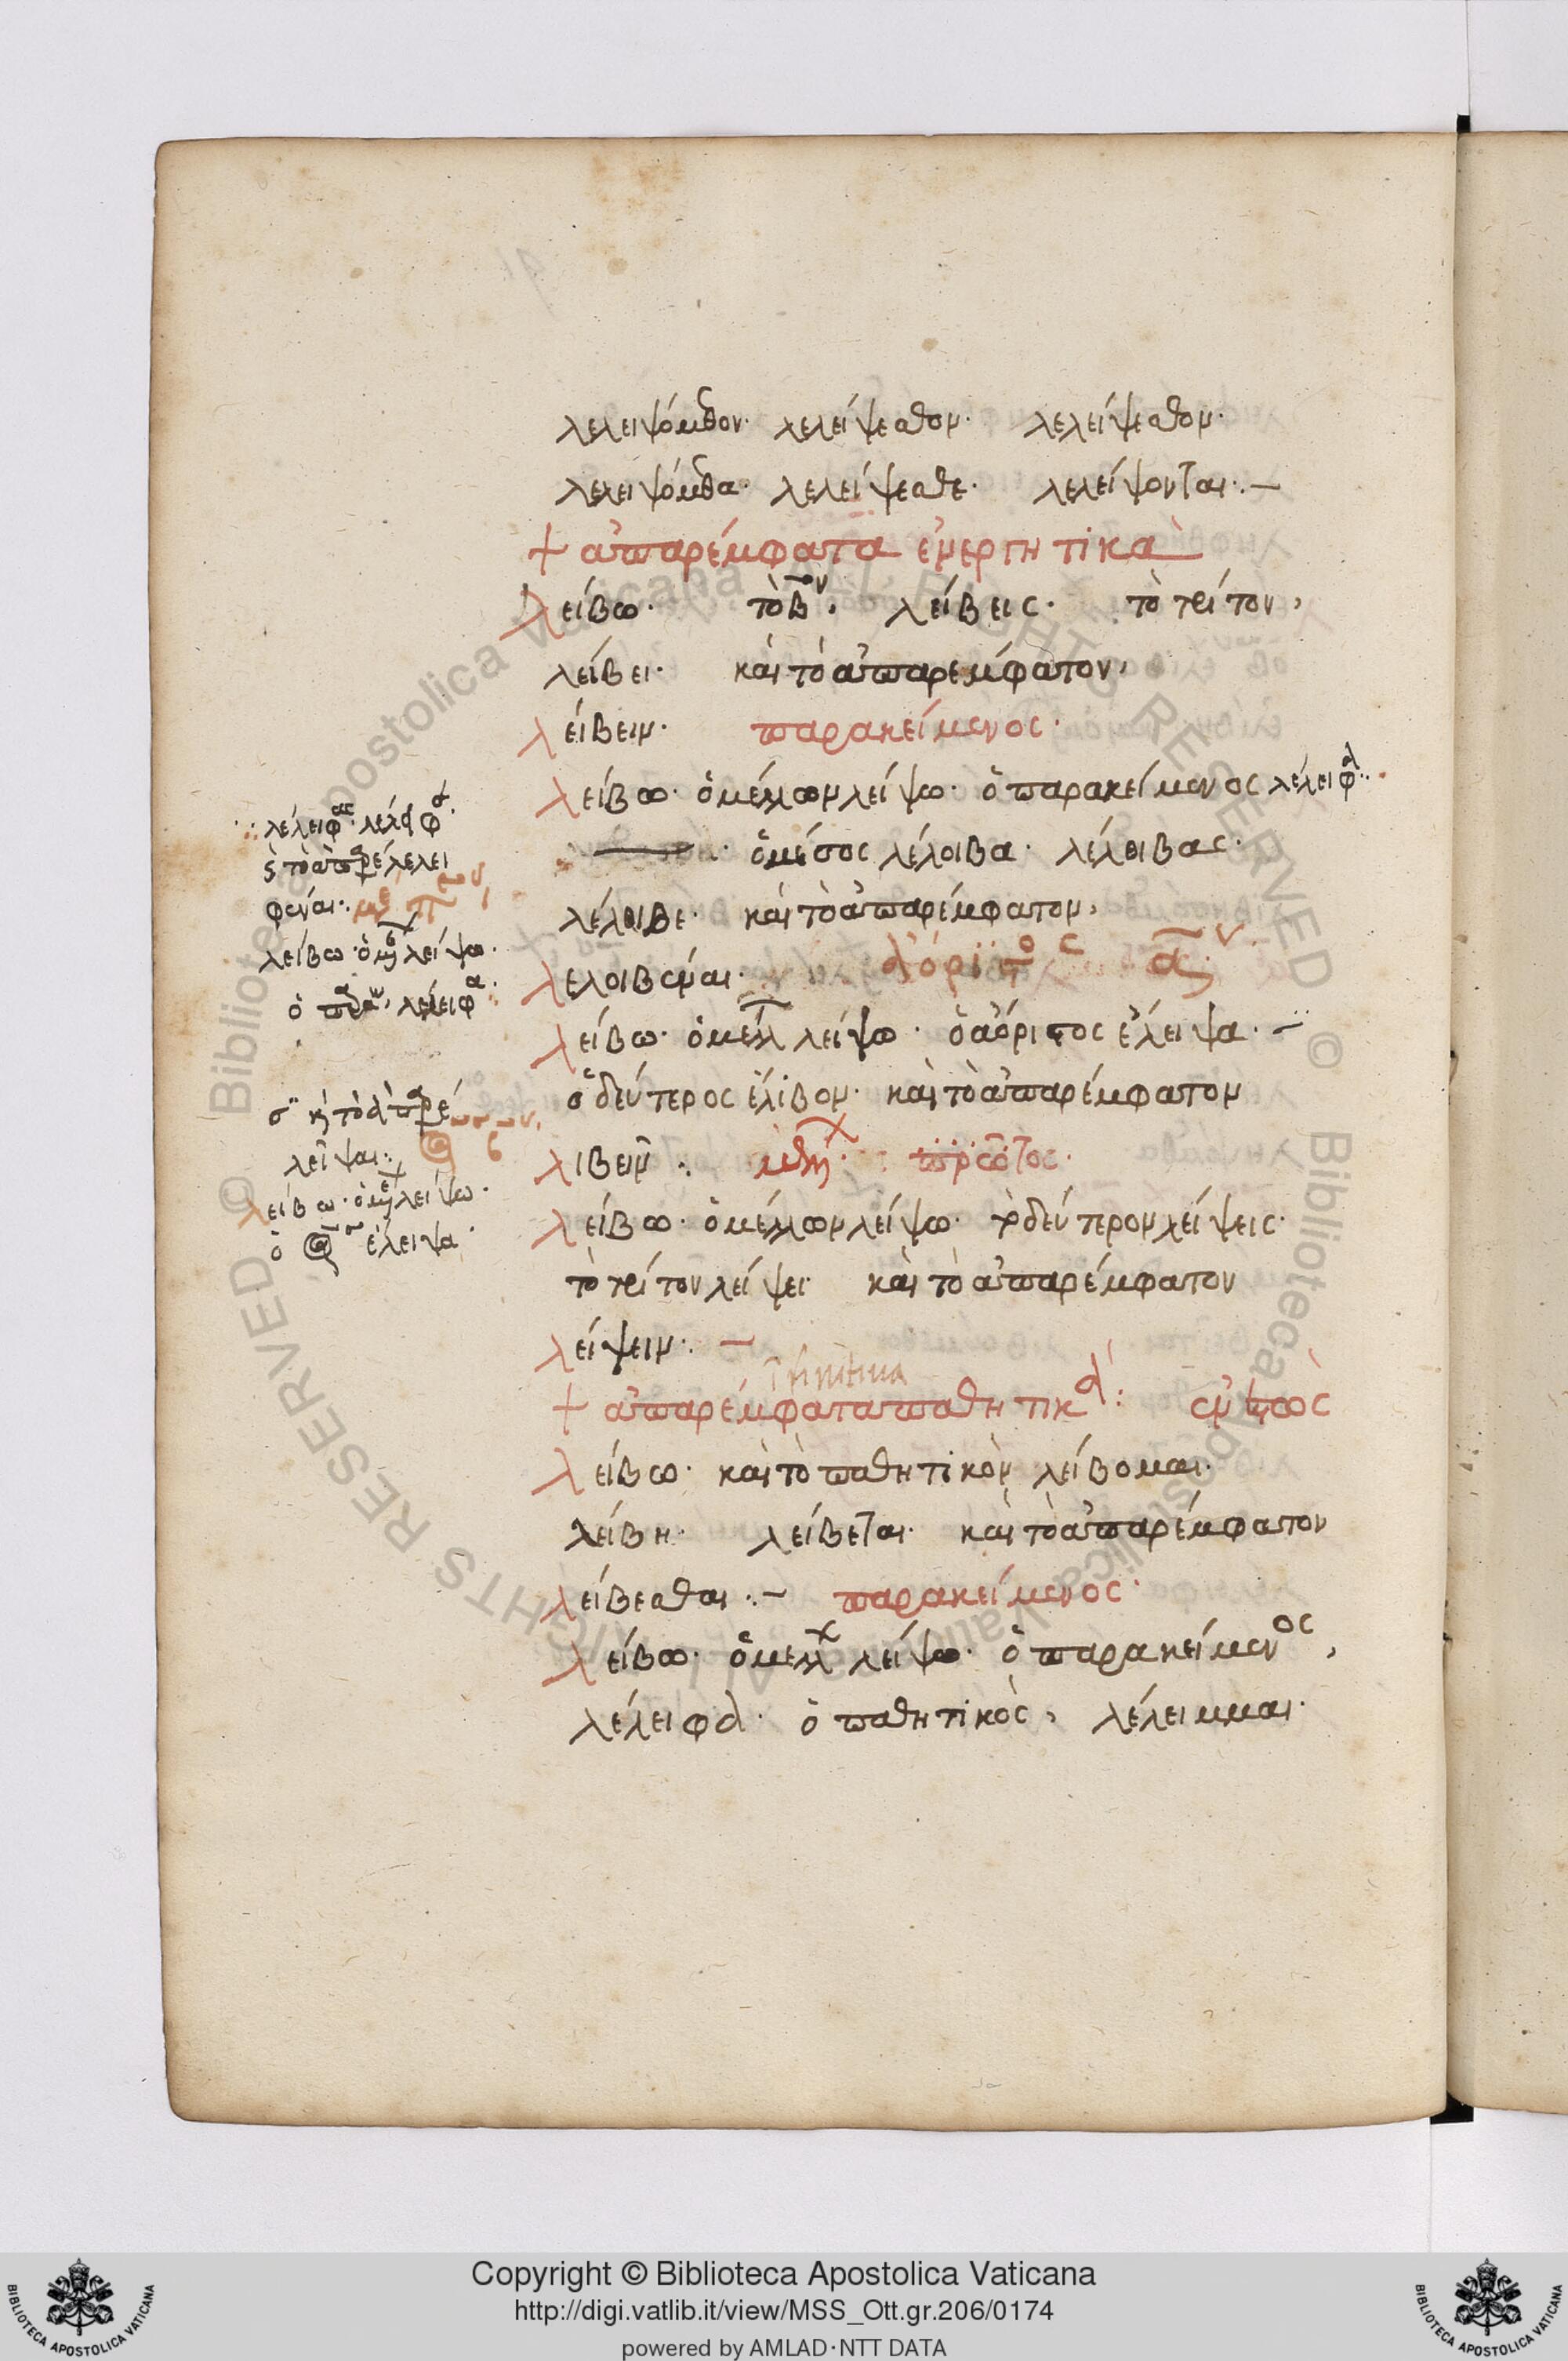 λελειψόμεθον· λελείψεσθον· λελείψεσθον·
λελειψόμεθα· λελείψεσθε· λελείψονται:–
+ ἀπαρέμφατα ἐνεργητικὰ
λείβω· τὸ βον, λείβεις· τὸ τρίτον,
λείβει· καὶ τὸ ἀπαρέμφατον,
λείβειν· παρακείμενος·
λείβω· ὁ μέλλων λείψω· ὁ παρακείμενος λέλειφα:
ὁ μέσος λέλοιβα· λέλοιβας·
λέλοιβε· καὶ τὸ ἀπαρέμφατον,
λελοιβέναι· ἀόριστος α
λείβω· ὁ μελλ λείψω· ὁ ἀόριστος ἔλειψα·–
ὁ δεύτερος ἔλιβον· καὶ τὸ ἀπαρέμφατον
λιβεῖν: μελλ πρῶτος·
λείβω· ὁ μέλλων λείψω· τὸ δεύτερον λείψεις·
τὸ τρίτον λείψει· καὶ τὸ ἀπαρέμφατον
λείψειν:–
Infinitiua
+ ἀπαρέμφατα παθητικά: ἐνεστὼς
λείβω· καὶ τὸ παθητικὸν λείβομαι·
λείβη· λείβεται· καὶ τὸ ἀπαρέμφατον
λείβεσθαι:– παρακείμενος·
λείβω· ὁ μελλ λείψω· ὁ παρακείμενος,
λέλειφα· ὁ παθητικὸς, λέλειμμαι·
λέλειφας· λέλειφε·
καὶ τὸ ἀπαρέ λελει
φέναι:
λείβω· ὁ μελλ λείψω·
ὁ λέλειφα·
καὶ τὸ ἀπαρέ
λεῖψαι:
λείβω· ὁ μελλ λείψω·
ὁ ἔλειψα·
Copyright © Biblioteca Apostolica Vaticana
http://digi.vatlib.it/view/MSS_Ott.gr.206/0174
powered by AMLAD·NTT DATA
BIBLIOTECA APOSTOLICA VATICANA
BIBLIOTECA APOSTOLICA VATICANA